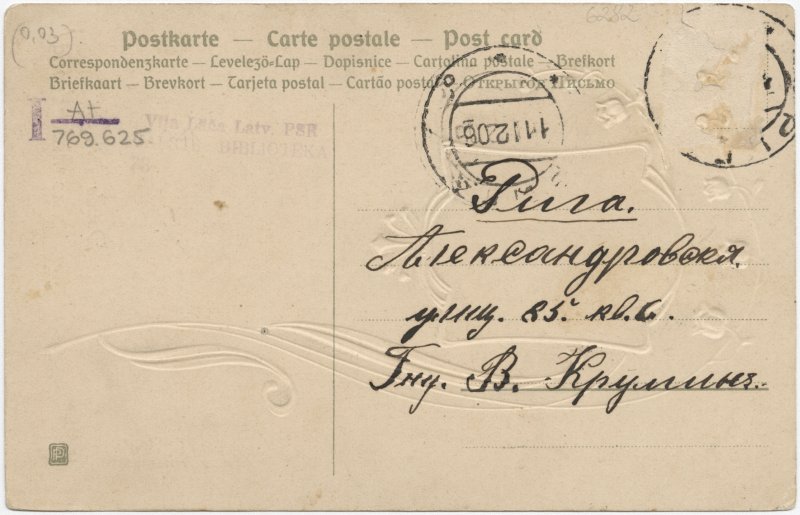 (0,03)
6282
Postkarte — Carte postale — Post card
Correspondenzkarte — Levelező-Lap — Dopisnice — Cartolina postale — Brefkort
Briefkaart — Brevkort — Tarjeta postal — Cartão postal — Открытое Письмо
A+
769.625
Viļa Lāča Latv. PSR
BIBLIOTEKA
11 12 06
Рига.
Александровская
улиц. 85. кв. 6.
Гну. В. Круминь.